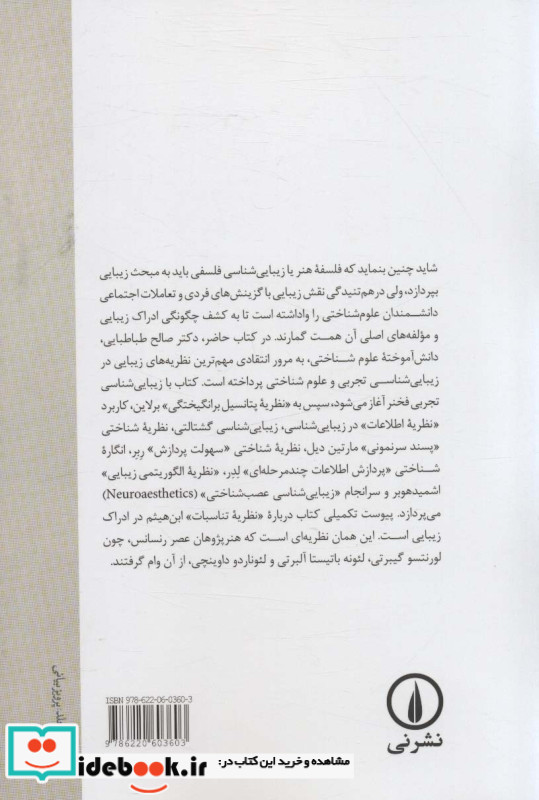 شاید چنین بنماید که فلسفهٔ هنر یا زیبایی‌شناسی فلسفی باید به مبحث زیبایی
بپردازد، ولی درهم‌تنیدگی نقش زیبایی با گزینش‌های فردی و تعاملات اجتماعی
دانشمندان علوم‌شناختی را واداشته است تا به کشف چگونگی ادراک زیبایی
و مؤلفه‌های اصلی آن همت گمارند. در کتاب حاضر، دکتر صالح طباطبایی،
دانش‌آموختهٔ علوم شناختی، به مرور انتقادی مهم‌ترین نظریه‌های زیبایی در
زیبایی‌شناسی تجربی و علوم شناختی پرداخته است. کتاب با زیبایی‌شناسی
تجربی فخنر آغاز می‌شود، سپس به «نظریهٔ پتانسیل برانگیختگی» برلاین، کاربرد
«نظریهٔ اطلاعات» در زیبایی‌شناسی، زیبایی‌شناسی گشتالتی، نظریهٔ شناختی
«پسند سرنمونی» مارتین دیل، نظریهٔ شناختی «سهولت پردازش» ربر، انگارهٔ
شناختی «پردازش اطلاعات چندمرحله‌ای» لِدِر، «نظریهٔ الگوریتمی زیبایی»
اشمیدهوبر و سرانجام «زیبایی‌شناسی عصب‌شناختی» (Neuroaesthetics)
می‌پردازد. پیوست تکمیلی کتاب دربارهٔ «نظریهٔ تناسبات» ابن‌هیثم در ادراک
زیبایی است. این همان نظریه‌ای است که هنرپژوهان عصر رنسانس، چون
لورنتسو گیبرتی، لئونه باتیستا آلبرتی و لئوناردو داوینچی، از آن وام گرفتند.
پرویز بیانی
ISBN 978-622-06-0360-3
9 786220 603603
نشرنی
idebook.ir
مشاهده و خرید این کتاب در: